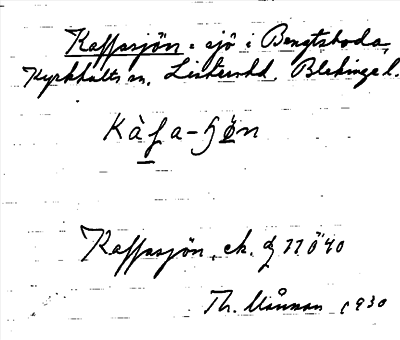 Kaffasjön: sjö i Bengtsboda,
Kyrkhults sn, Listers hd, Blekinge l.
Kàfa-ʃö̀n
Kaffasjön, ek. bl 11 ö 40
Th. Månsson 1930